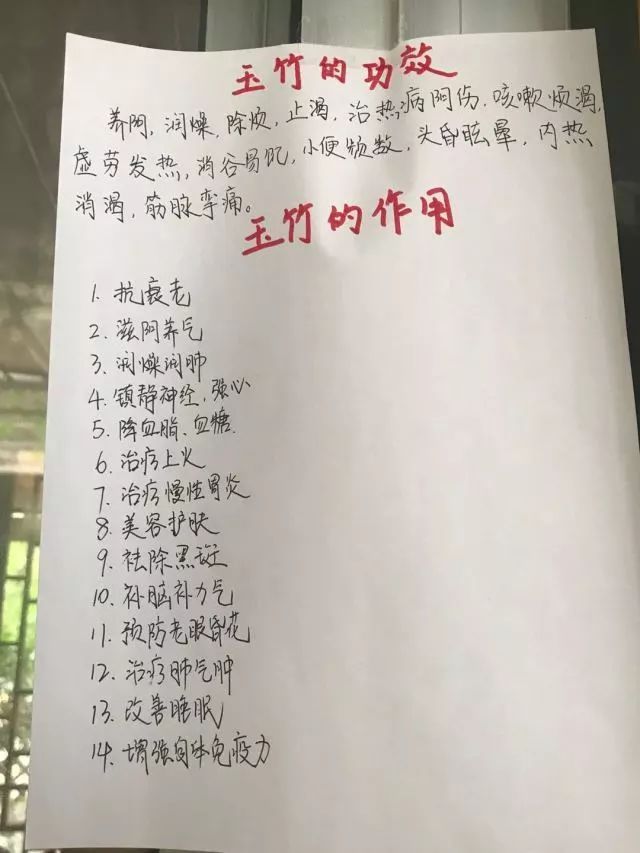 玉竹的功效
养阴,润燥,除烦,止渴,治热病阴伤,咳嗽烦渴,
虚劳发热,消谷易饥,小便频数,头昏眩晕,内热
消渴,筋脉挛痛。
玉竹的作用
1. 抗衰老
2. 滋阴养气
3. 润燥润肺
4. 镇静神经、强心
5. 降血脂、血糖.
6. 治疗上火
7. 治疗慢性胃炎
8. 美容护肤
9. 祛除黑斑
10. 补脑补力气
11. 预防老眼昏花
12. 治疗肺气肿
13. 改善睡眠
14. 增强自体免疫力